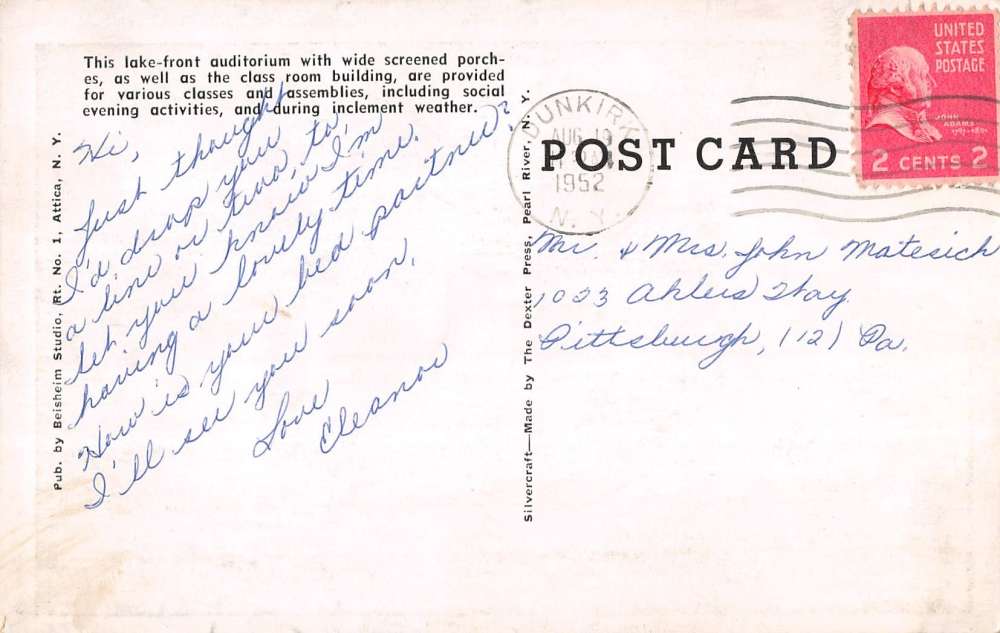 This lake-front auditorium with wide screened porch-
es, as well as the class room building, are provided
for various classes and assemblies, including social
evening activities, and during inclement weather.
Hi,
Just thought
I'd drop you
a line or two, to
let you know I'm
having a lovely time.
How is your bed partner?
I'll see you soon.
Love
Eleanor
Pub. by Beisheim Studio, Rt. No. 1, Attica, N. Y.
Silvercraft—Made by The Dexter Press, Pearl River, N. Y.
POST CARD
DUNKIRK
AUG 19
1952
N. Y.
UNITED
STATES
POSTAGE
JOHN
ADAMS
2 CENTS 2
Mr. & Mrs. John Matesich
1033 Ahlers Way
Pittsburgh, (12) Pa.